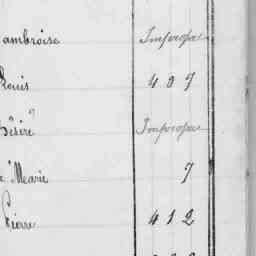 ambroise Impropre
Louis 407
Désiré Impropre
Marie 7
Pierre 412